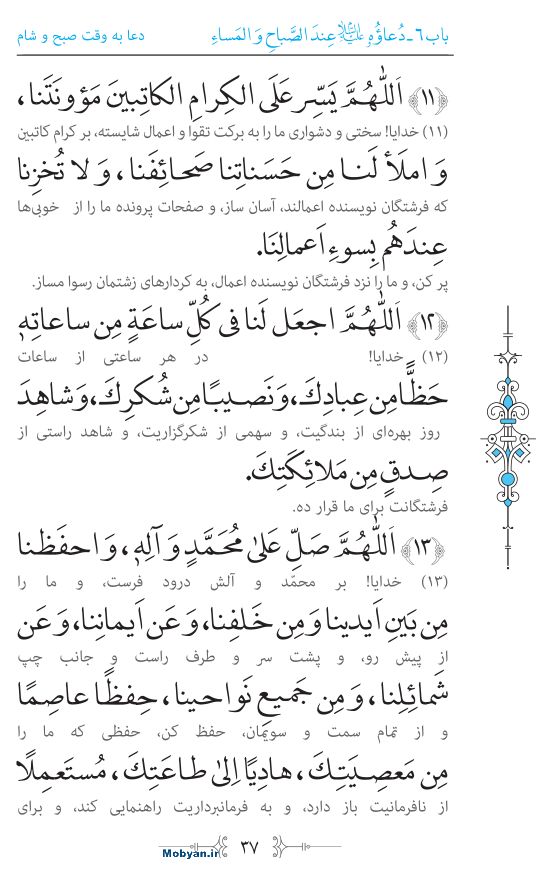 باب ۶ - دُعاؤُهُ علیه‌السلام عِندَ الصَّباحِ وَ المَساءِ دعا به وقت صبح و شام
﴿۱۱﴾ اَللّٰهُمَّ يَسِّر عَلَى الكِرامِ الكاتِبينَ مَؤونَتَنا،
(۱۱) خدایا! سختی و دشواری ما را به برکت تقوا و اعمال شایسته، بر کرام کاتبین
وَ املَأ لَنا مِن حَسَناتِنا صَحائِفَنا، وَ لا تُخزِنا
که فرشتگان نویسنده اعمالند، آسان ساز، و صفحات پرونده ما را از خوبی‌ها
عِندَهُم بِسوءِ اَعمالِنَا.
پر کن، و ما را نزد فرشتگان نویسنده اعمال، به کردارهای زشتمان رسوا مساز.
﴿۱۲﴾ اَللّٰهُمَّ اجعَل لَنا فی كُلِّ ساعَةٍ مِن ساعاتِهِ
(۱۲) خدایا! در هر ساعتی از ساعات
حَظًّا مِن عِبادِكَ، وَ نَصيبًا مِن شُكرِكَ، وَ شاهِدَ
روز بهره‌ای از بندگیت، و سهمی از شکرگزاریت، و شاهد راستی از
صِدقٍ مِن مَلائِكَتِكَ.
فرشتگانت برای ما قرار ده.
﴿۱۳﴾ اَللّٰهُمَّ صَلِّ عَلىٰ مُحَمَّدٍ وَ آلِهِ، وَ احفَظنا
(۱۳) خدایا! بر محمّد و آلش درود فرست، و ما را
مِن بَينِ اَيدينا وَ مِن خَلفِنا، وَ عَن اَيمانِنا، وَ عَن
از پیش رو، و پشت سر و طرف راست و جانب چپ
شَمائِلِنا، وَ مِن جَميعِ نَواحينا، حِفظًا عاصِمًا
و از تمام سمت و سویمان، حفظ کن، حفظی که ما را
مِن مَعصِيَتِكَ، هادِيًا اِلىٰ طاعَتِكَ، مُستَعمِلًا
از نافرمانیت باز دارد، و به فرمانبرداریت راهنمایی کند، و برای
۳۷
Mobyan.ir